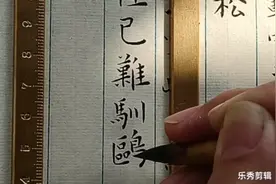 松
已難馴鷗
乐秀剪辑